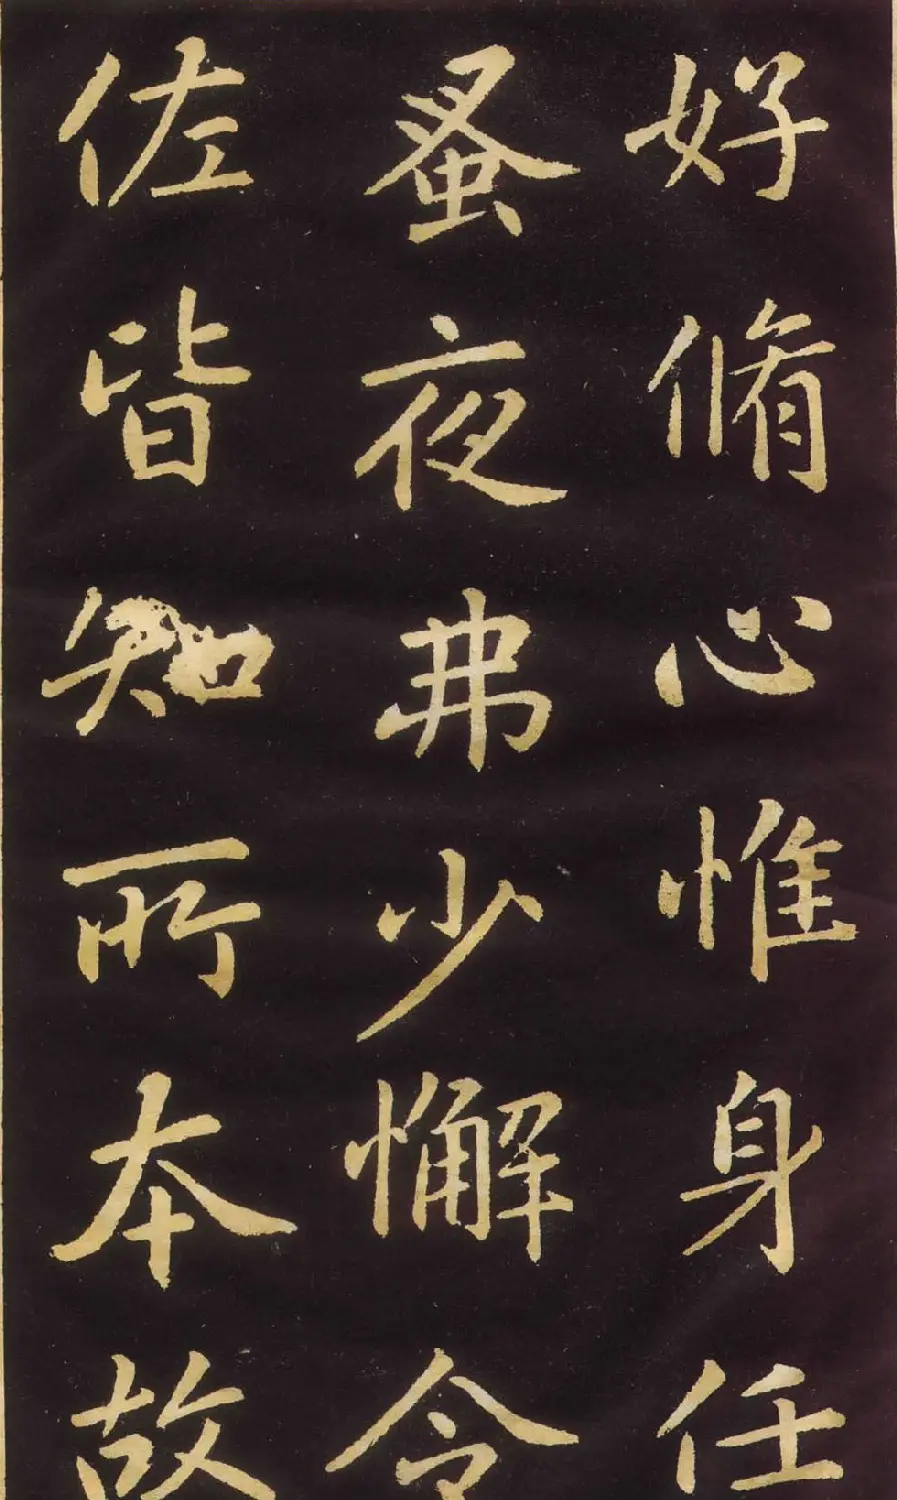 好脩心惟身任
蚤夜弗少懈令
佐皆知所本故